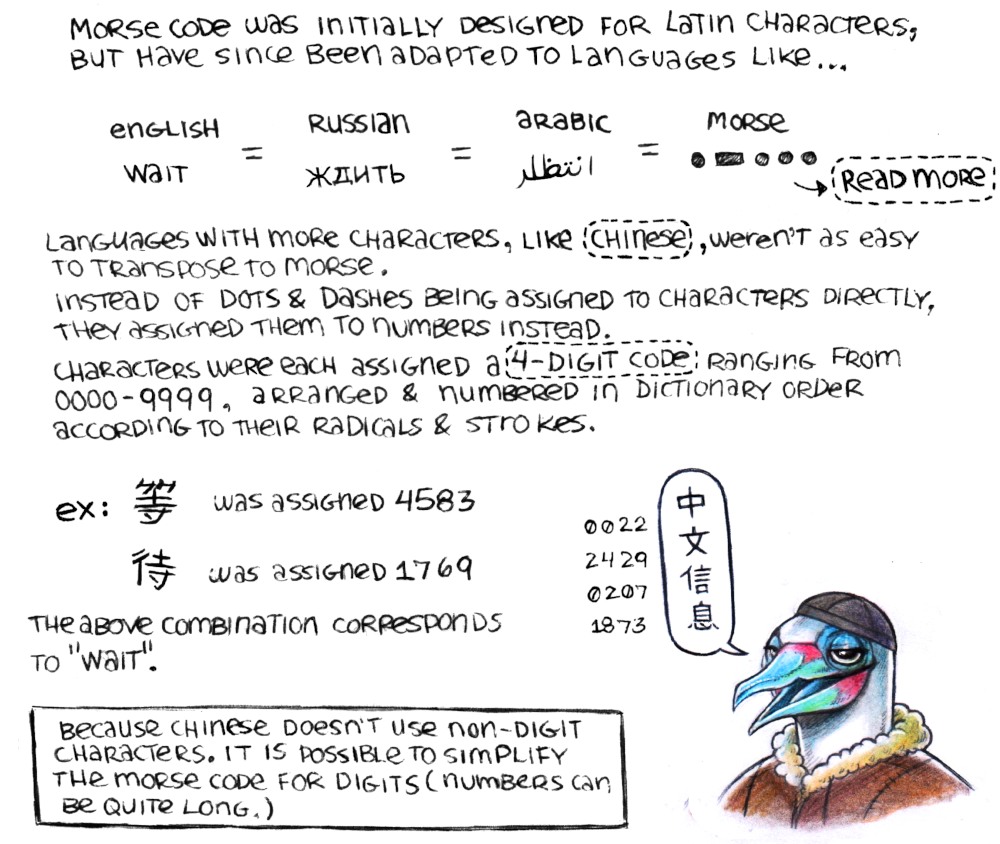 MORSE CODE WAS INITIALLY DESIGNED FOR LATIN CHARACTERS,
BUT HAVE SINCE BEEN ADAPTED TO LANGUAGES LIKE...
ENGLISH RUSSIAN ARABIC MORSE
WAIT = ЖДИТЬ = انتظار = ●▬●●●
READ MORE
LANGUAGES WITH MORE CHARACTERS, LIKE CHINESE, WEREN'T AS EASY
TO TRANSPOSE TO MORSE.
INSTEAD OF DOTS & DASHES BEING ASSIGNED TO CHARACTERS DIRECTLY,
THEY ASSIGNED THEM TO NUMBERS INSTEAD.
CHARACTERS WERE EACH ASSIGNED A 4-DIGIT CODE RANGING FROM
0000-9999, ARRANGED & NUMBERED IN DICTIONARY ORDER
ACCORDING TO THEIR RADICALS & STROKES.
EX: 等 WAS ASSIGNED 4583
待 WAS ASSIGNED 1769
THE ABOVE COMBINATION CORRESPONDS
TO "WAIT".
0022
2429
0207
1873
中文信息
BECAUSE CHINESE DOESN'T USE NON-DIGIT
CHARACTERS. IT IS POSSIBLE TO SIMPLIFY
THE MORSE CODE FOR DIGITS (NUMBERS CAN
BE QUITE LONG.)